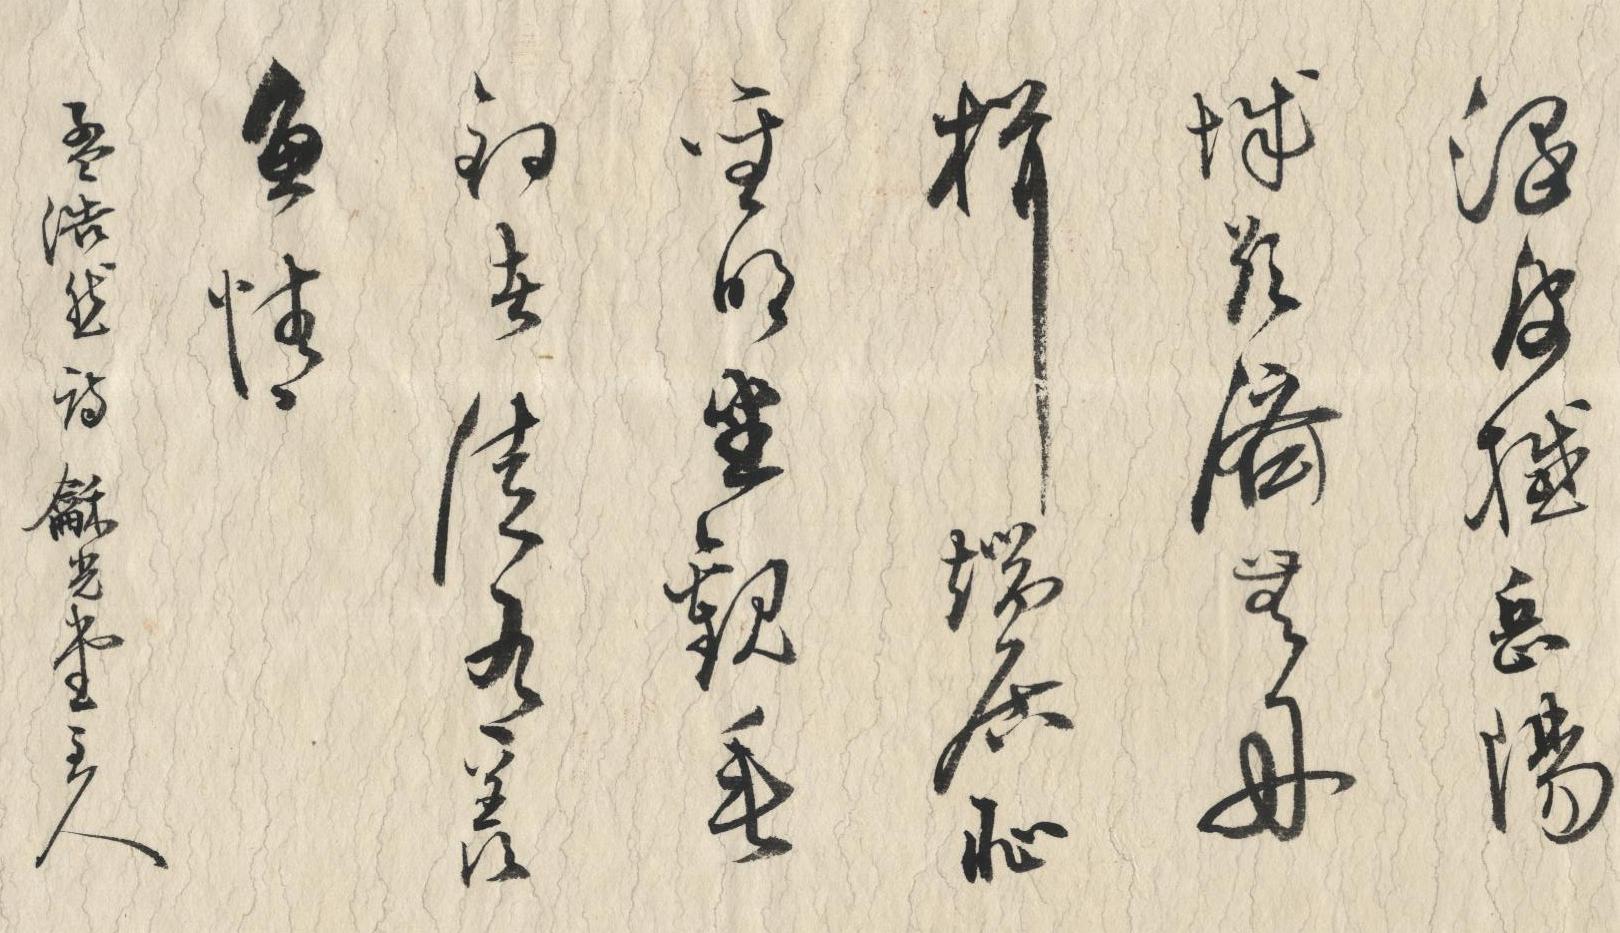 澤波撼岳陽
城欲濟無舟
楫端居恥
聖明坐觀垂
釣者徒有羨
魚情
孟浩然詩 龢光堂主人